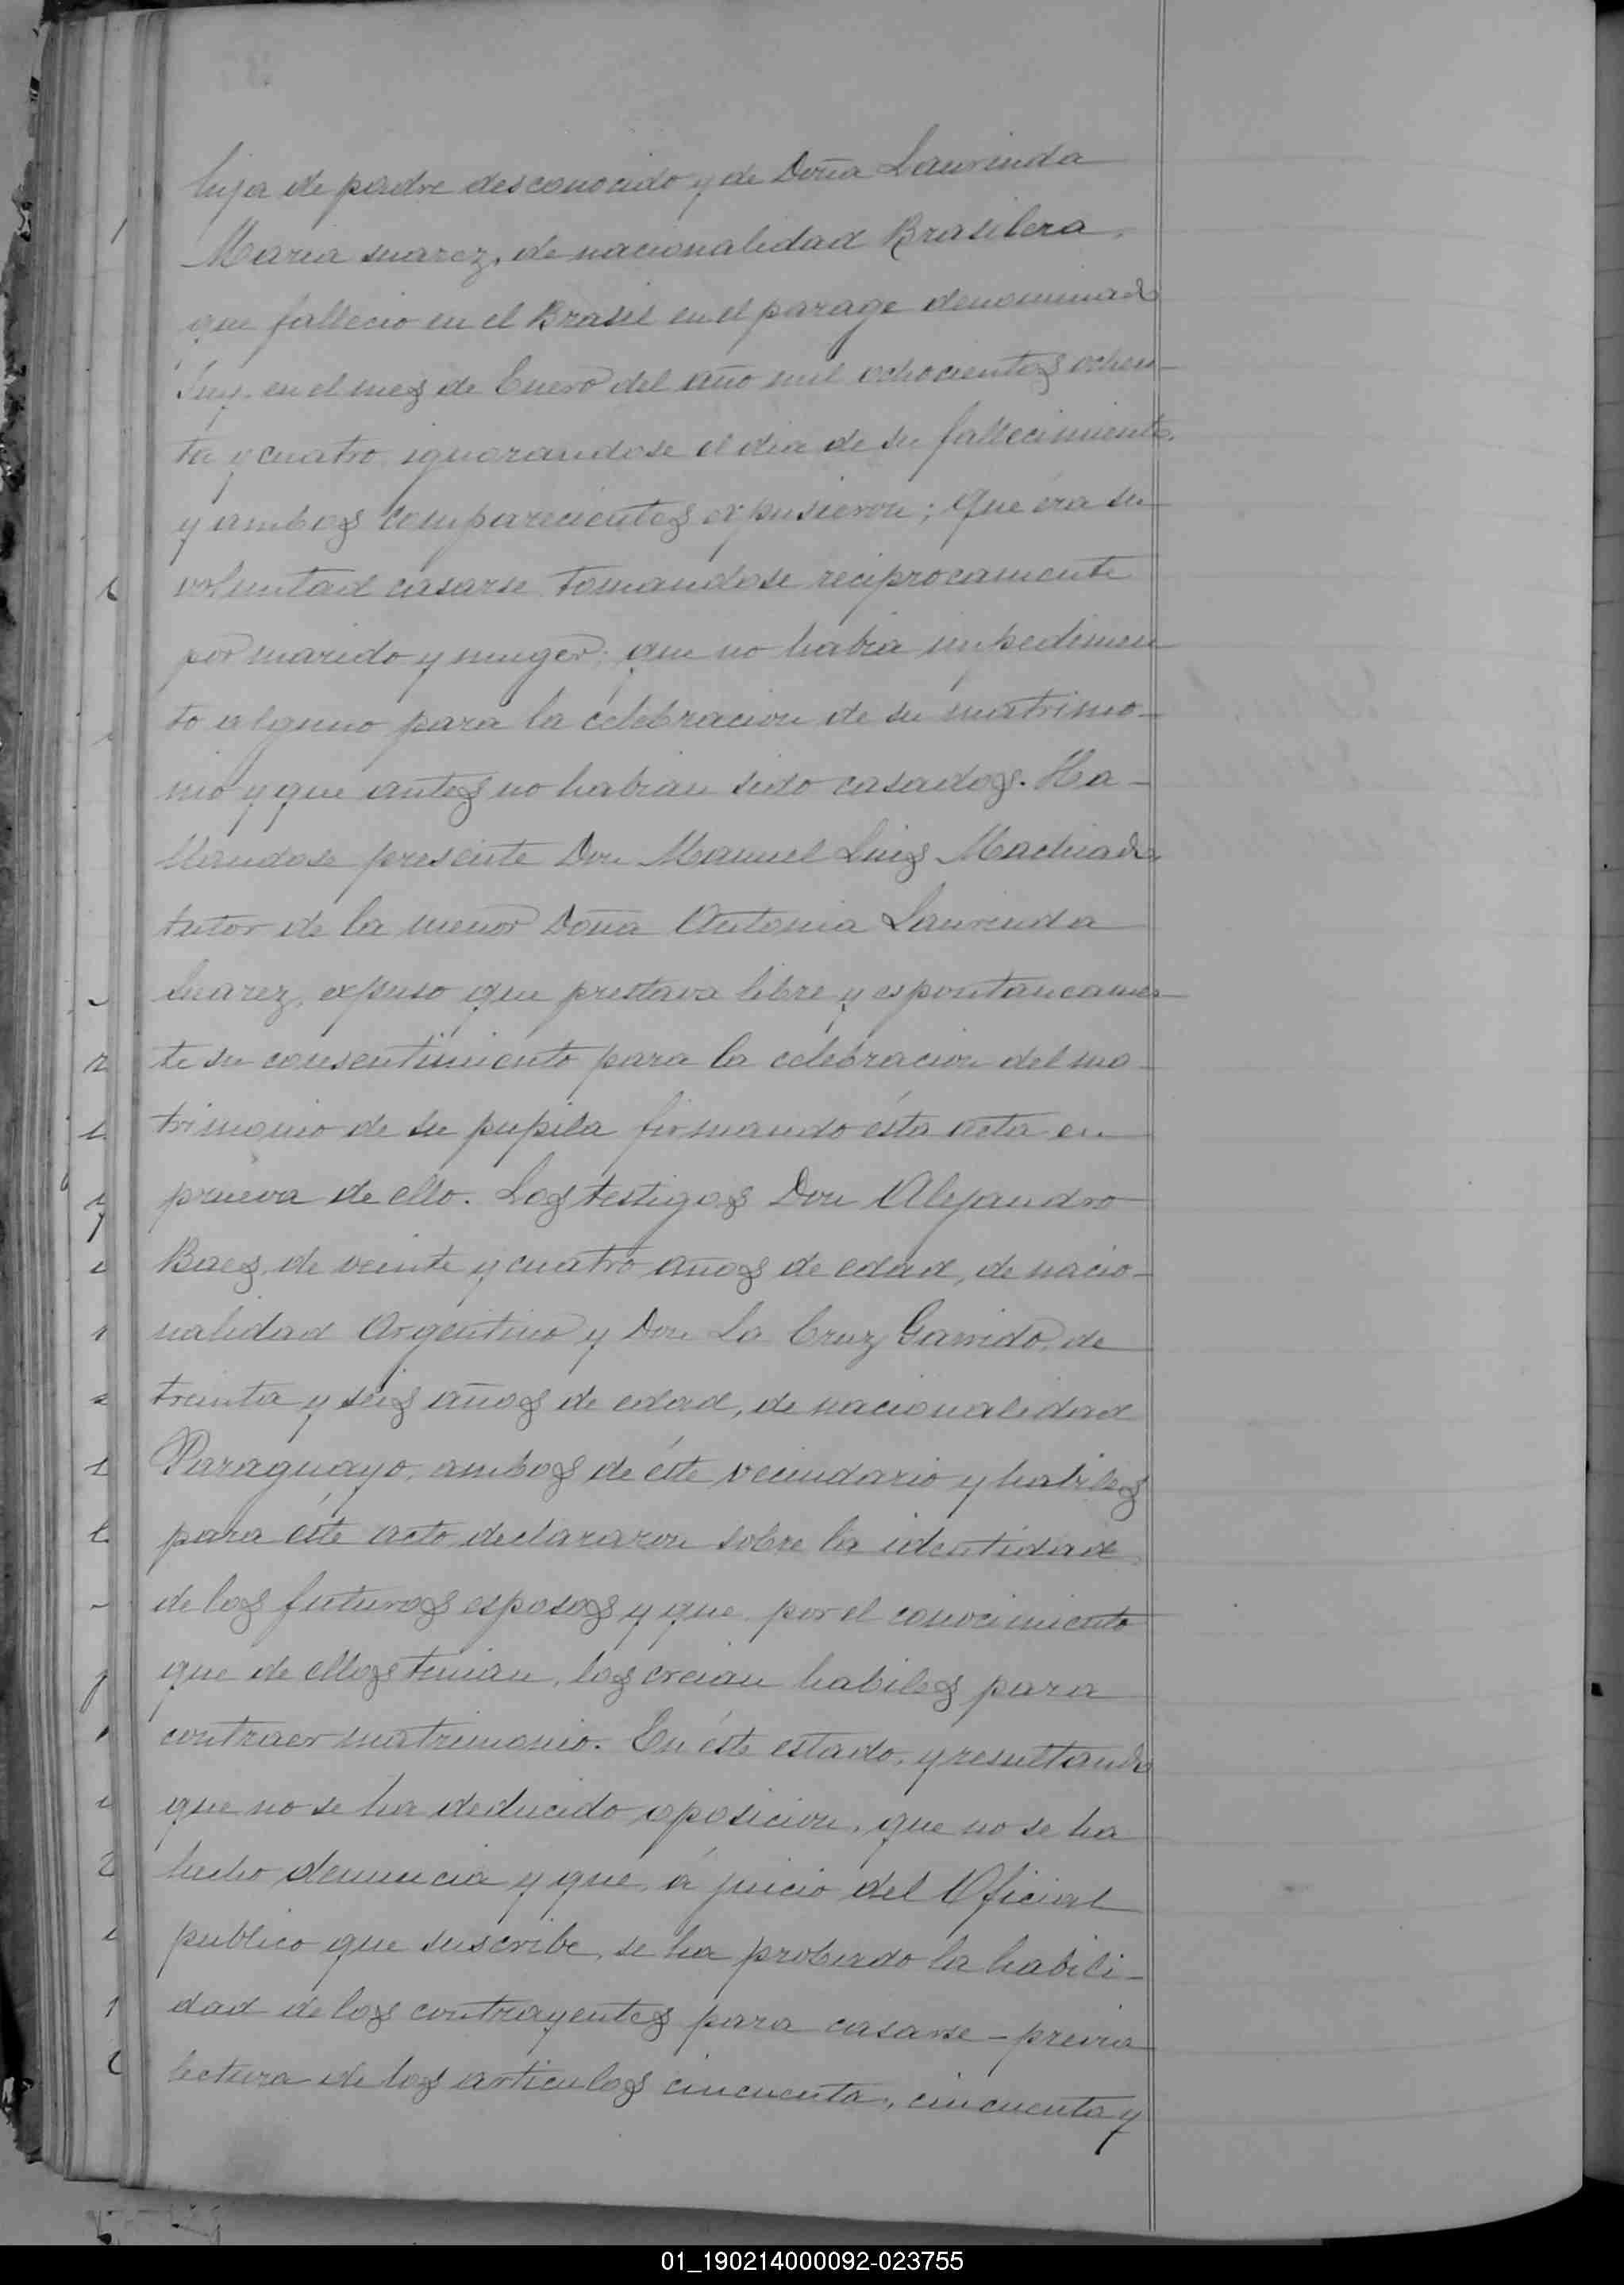 hija de padre desconocido y de Doña Laurinda
Maria suarez, de nacionalidad Brasilera,
que fallecio en el Brasil en el parage denominado
en el mes de Enero del año mil ochocientos ochen-
ta y cuatro ignorandose el dia de su fallecimiento,
y ambos comparecientes expusieron; Que éra su
voluntad casarse tomandose reciprocamente
por marido y muger; que no habia impedimen
to alguno para la celebracion de su matrimo-
nio y que antes no habian sido casados. Ha-
llandose presente Don Manuel Luis Machado,
tutor de la menor Doña Antonia Laurinda
Suarez, expuso que prestava libre y espontaneamen-
te su consentimiento para la celebracion del ma-
trimonio de su pupila firmando ésta acta en
prueva de ello. Los testigos Don Alejandro
Baes, de veinte y cuatro años de edad, de nacio-
nalidad Argentino y Don La Cruz Garrido, de
treinta y seis años de edad, de nacionalidad
Paraguayo, ambos de éste vecindario y habiles
para éste acto declararon sobre la identidad
de los futuros esposos y que por el conocimiento
que de ellos tenian, los creian habiles para
contraer matrimonio. En éste estado, y resultando
que no se ha deducido oposicion, que no se ha
hecho denuncia y que, á juicio del Oficial
publico que suscribe, se ha probado la habili-
dad de los contrayentes para casarse - previa
lectura de los articulos cincuenta, cincuenta y
01_190214000092-023755